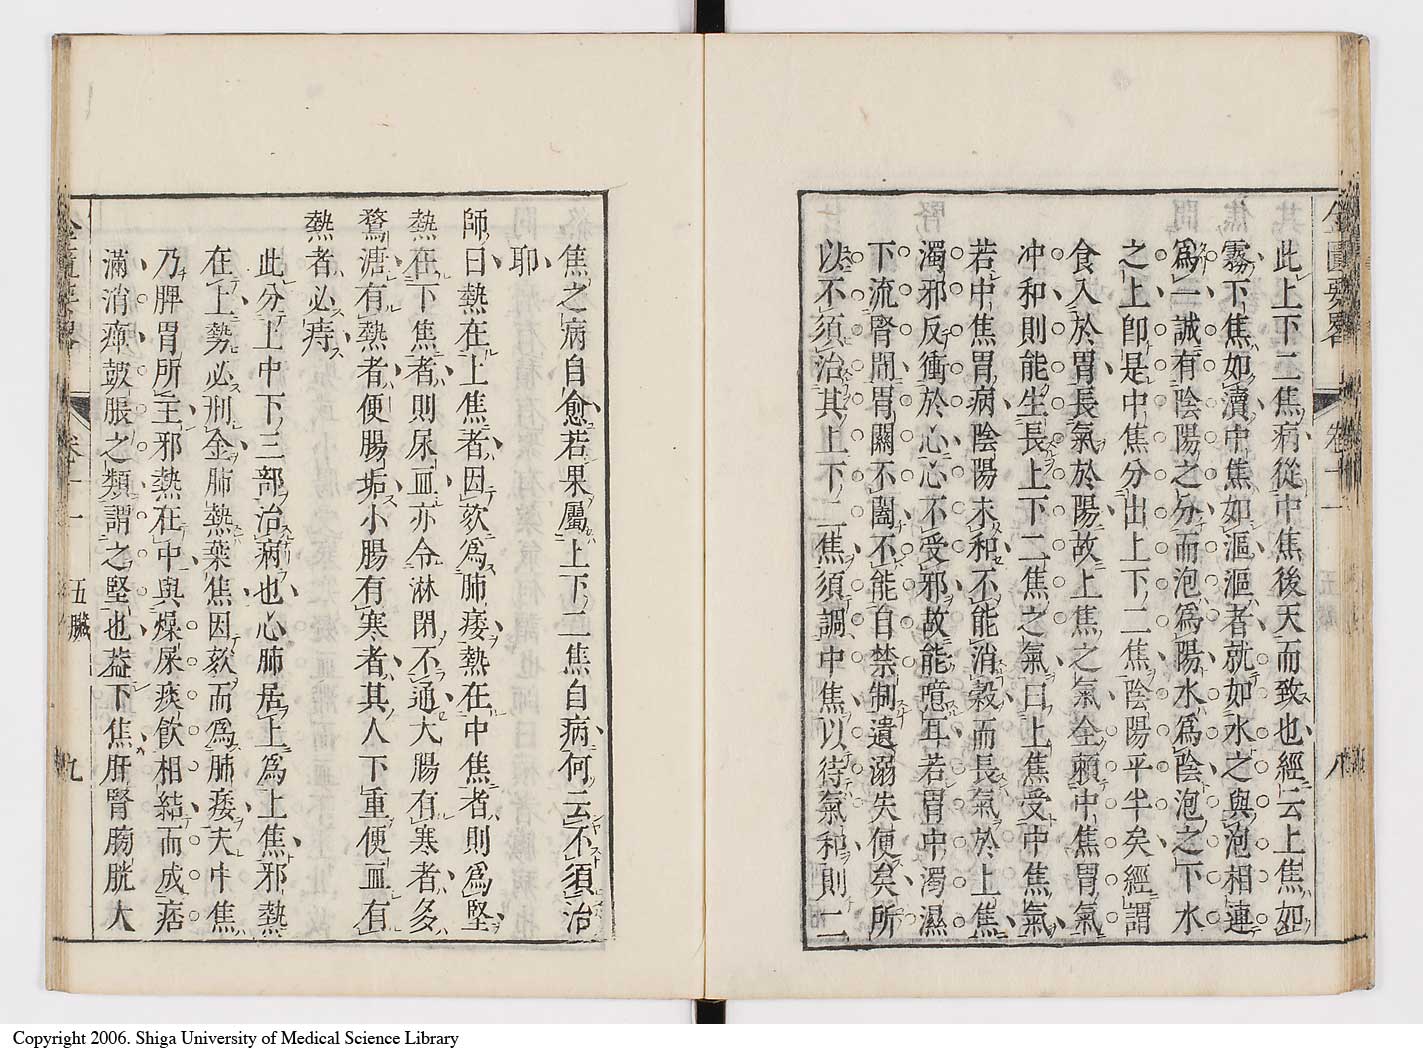 此上下二焦病從中焦後天而致也經云上焦如
霧下焦如瀆中焦如漚漚者就如水之與泡相連
爲一誠有陰陽之分而泡爲陽水爲陰泡之下水
之上卽是中焦分出上下二焦陰陽平半矣經謂
食入於胃長氣於陽故上焦之氣全賴中焦胃氣
冲和則能生長上下二焦之氣曰上焦受中焦氣
若中焦胃病陰陽未和不能消穀而長氣於上焦
濁邪反衝於心心不受邪故能噫耳若胃中濁濕
下流腎間胃關不闔不能自禁制遺溺失便矣所
以不須治其上下二焦須調中焦以待氣和則二
金匱要畧 卷十一 八
焦之病自愈若果屬上下二焦自病何云不須治
耶
師曰熱在上焦者因欬爲肺痿熱在中焦者則爲堅
熱在下焦者則尿血亦令淋閉不通大腸有寒者多
鶩溏有熱者便腸垢小腸有寒者其人下重便血有
熱者必痔
此分上中下三部治病也心肺居上爲上焦邪熱
在上勢必刑金肺熱葉焦因欬而爲肺痿夫中焦
乃脾胃所主邪熱在中與燥屎痰飮相結而成痞
滿消癉皷脹之類謂之堅也葢下焦肝腎膀胱大
卷十一 五臟 九
Copyright 2006. Shiga University of Medical Science Library